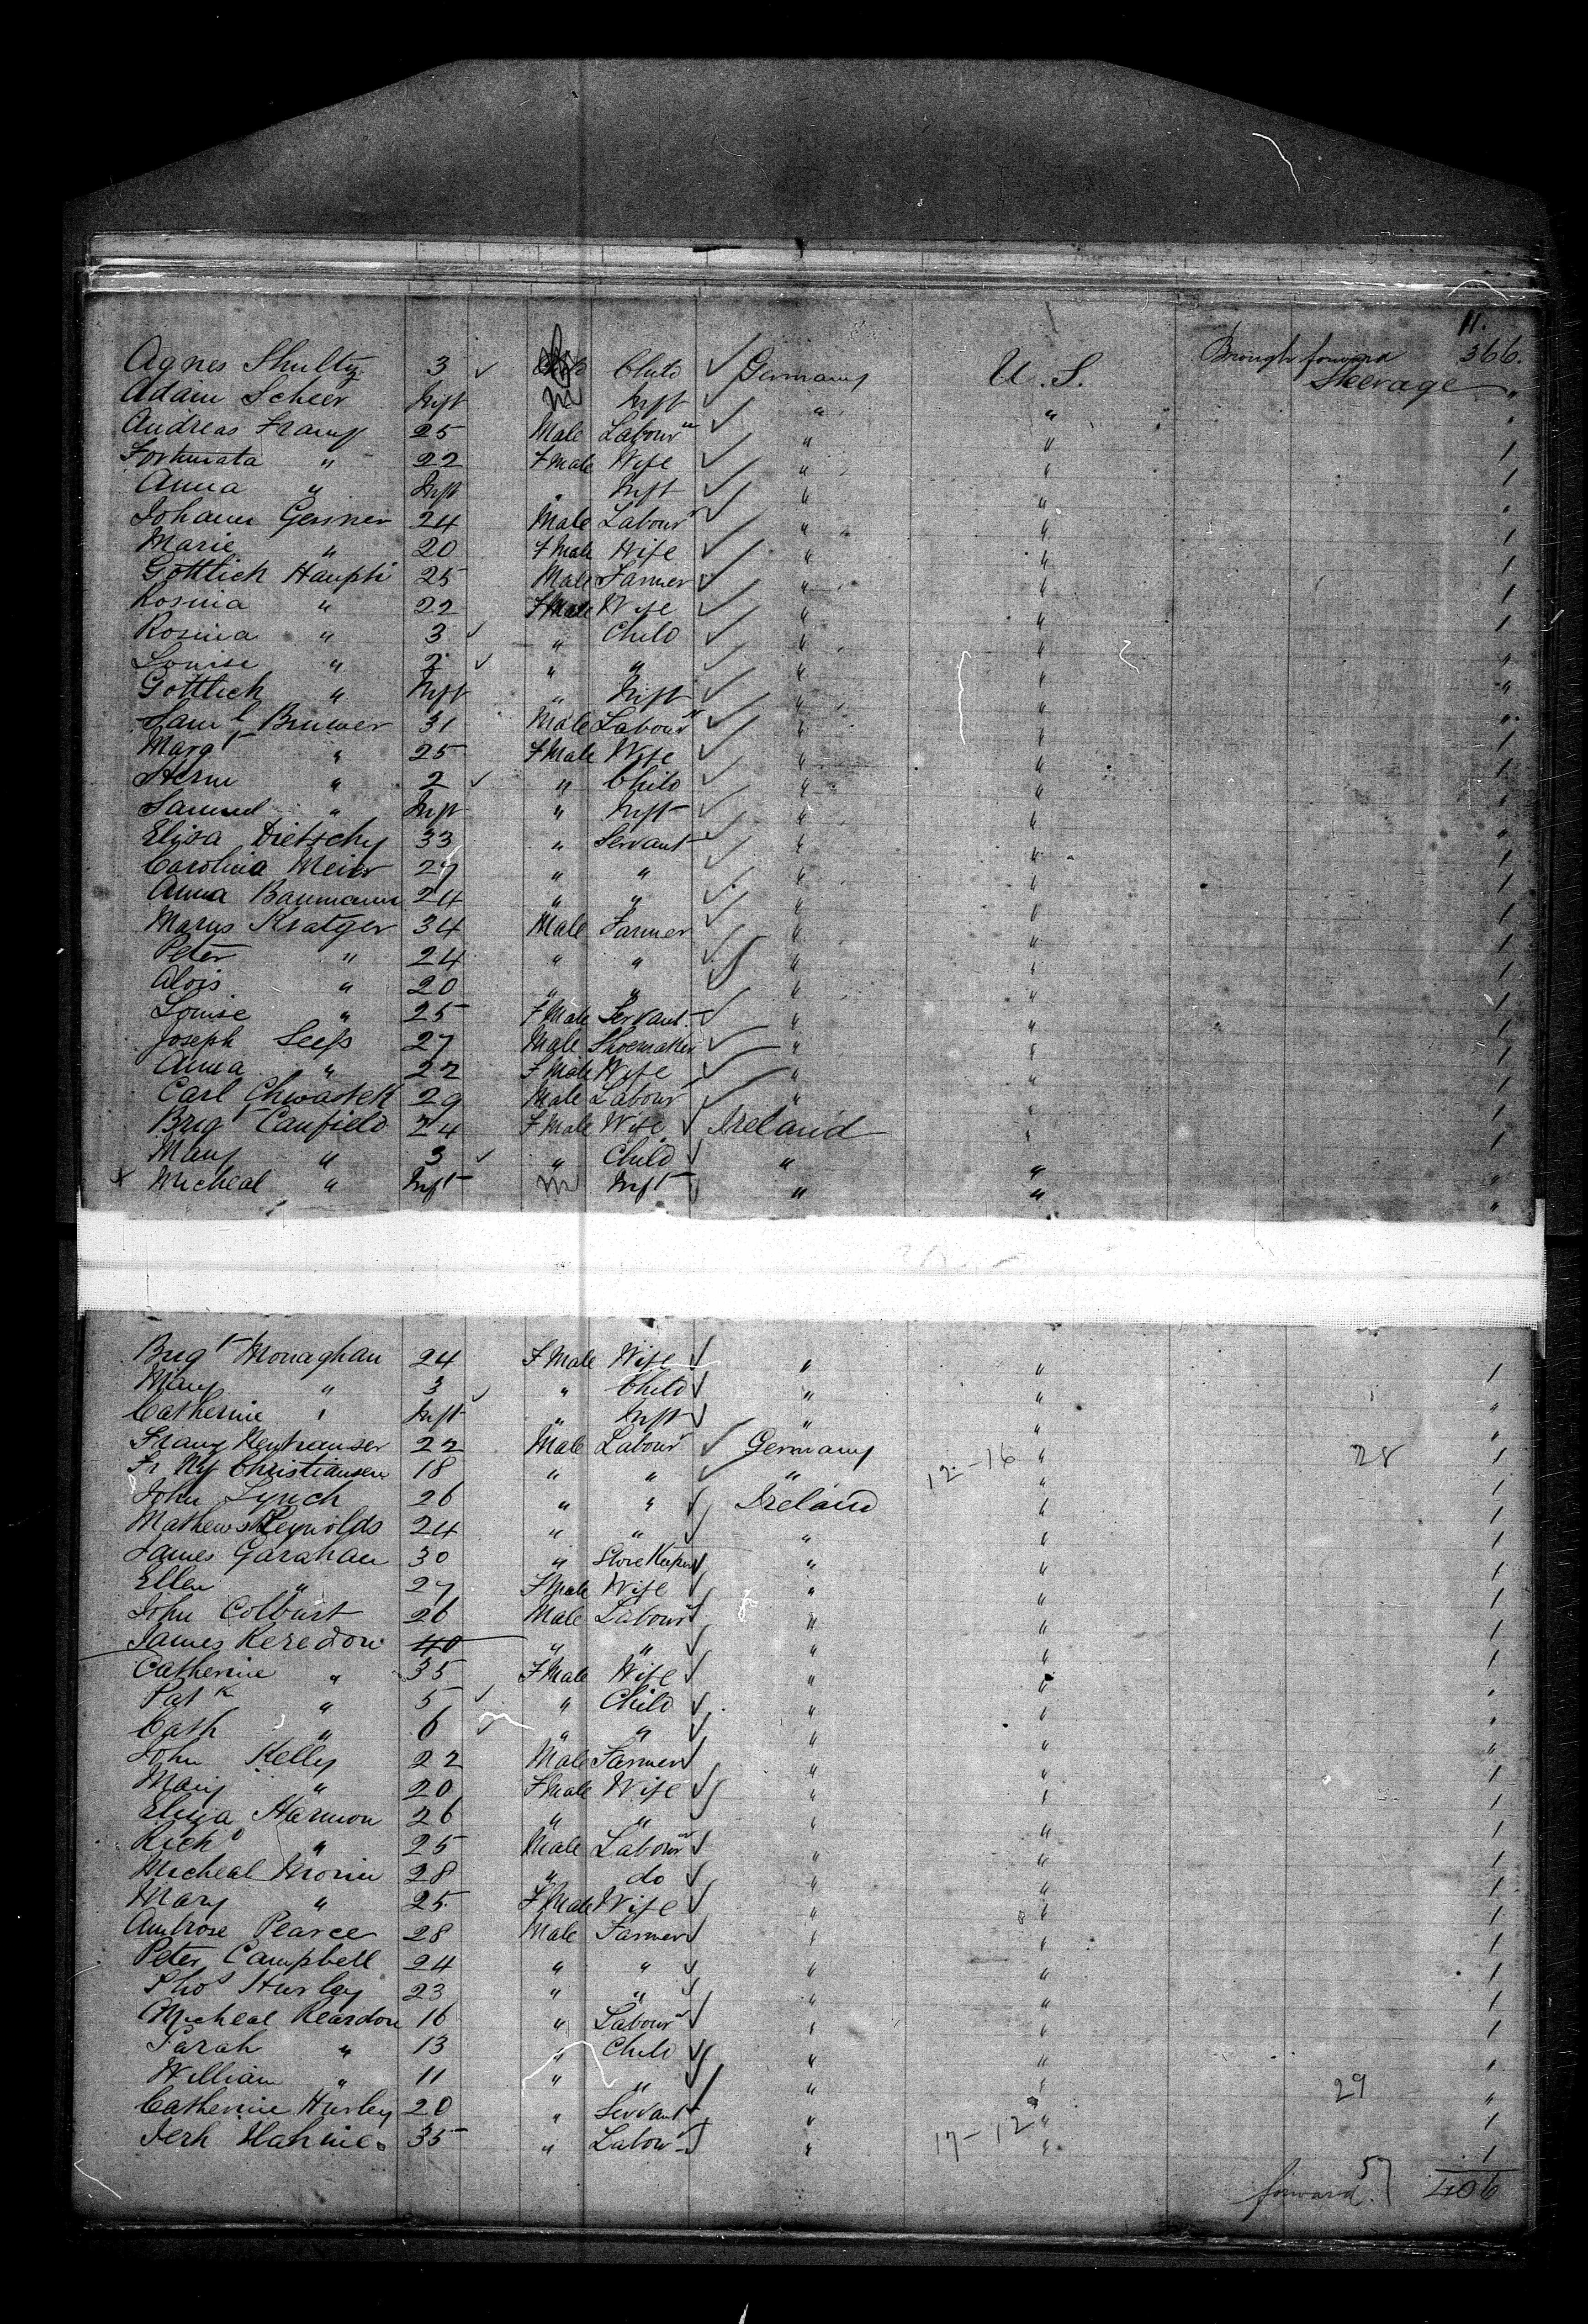 11.
Brough forward 366.
Agnes Shultz 3 ✓ Child ✓ Germany U.S. Steerage "
Adam Scheer Inft m Inft ✓ " " "
Andreas Framp 25 Male Labour ✓ " " 1
Fortunata " 22 FMale Wife ✓ " " 1
Anna " Inft " Inft ✓ " " "
Johann Gessner 24 Male Labour ✓ " " 1
Marie " 20 FMale Wife ✓ " " 1
Gottlieh Haupti 25 Male Farmer ✓ " " 1
Rosina " 22 FMale Wife ✓ " " 1
Rosina " 3 ✓ " Child ✓ " " "
Louise " 2 ✓ " " ✓ " " "
Gottlieh " Inft " Inft ✓ " " "
Saml Bruwer 31 Male Labour ✓ " " 1
Margt " 25 FMale Wife ✓ " " 1
Herm " 2 ✓ " Child ✓ " " "
Samuel " Inft " Inft ✓ " " "
Elisa Dietschy 33 " Servant ✓ " " 1
Carolina Meier 27 " " ✓ " " 1
Anna Baumann 24 " " ✓ " " 1
Marus Kratger 34 Male Farmer ✓ " " 1
Peter " 24 " " ✓ " " 1
Alois " 20 " " ✓ " " 1
Louise " 25 FMale Servant ✓ " " 1
Joseph Seefs 27 Male Shoemaker ✓ " " 1
Anna " 22 FMale Wife ✓ " " 1
Carl Chwastek 29 Male Labour ✓ " " 1
Brigt Canfield 24 FMale Wife ✓ Ireland " 1
Mary " 3 ✓ " Child ✓ " " "
x Micheal " Inft m Inft ✓ " " "
Brigt Monaghan 24 FMale Wife ✓ " " 1
Mary " 3 ✓ " Child ✓ " " "
Catherine " Inft " Inft ✓ " " "
Franz Neuhauser 22 Male Labour ✓ Germany " 28 1
Fr Ny Christiansen 18 " " ✓ " 12-16 " 1
John Lynch 26 " " ✓ Ireland " 1
Mathew Reynolds 24 " " ✓ " " 1
James Garahan 30 " Store Keeper ✓ " " 1
Ellen " 27 FMale Wife ✓ " " 1
John Colburt 26 Male Labour ✓ " " 1
James Reredon 40 " " ✓ " " 1
Catherine " 35 FMale Wife ✓ " " "
Patk " 5 ✓ " Child ✓ " " "
Cath " 6 ✓ " " ✓ " " "
John Kelly 22 Male Farmer ✓ " " 1
Mary " 20 FMale Wife ✓ " " 1
Eliza Harmon 26 " " " " 1
Richd " 25 Male Labour ✓ " " 1
Micheal Morin 28 " do ✓ " " 1
Mary " 25 FMale Wife ✓ " " 1
Ambrose Pearce 28 Male Farmer ✓ " 8 " 1
Peter Campbell 24 " " ✓ " " 1
Thos Hurley 23 " " ✓ " " 1
Micheal Reardon 16 " Labour ✓ " " 1
Sarah " 13 " Child ✓ " " "
William " 11 " " ✓ " " 29 "
Catherine Hurley 20 " Servant ✓ " " 1
Jerh Hahnie 35 " Labour ✓ " 17-12 " 1
forward 57 406